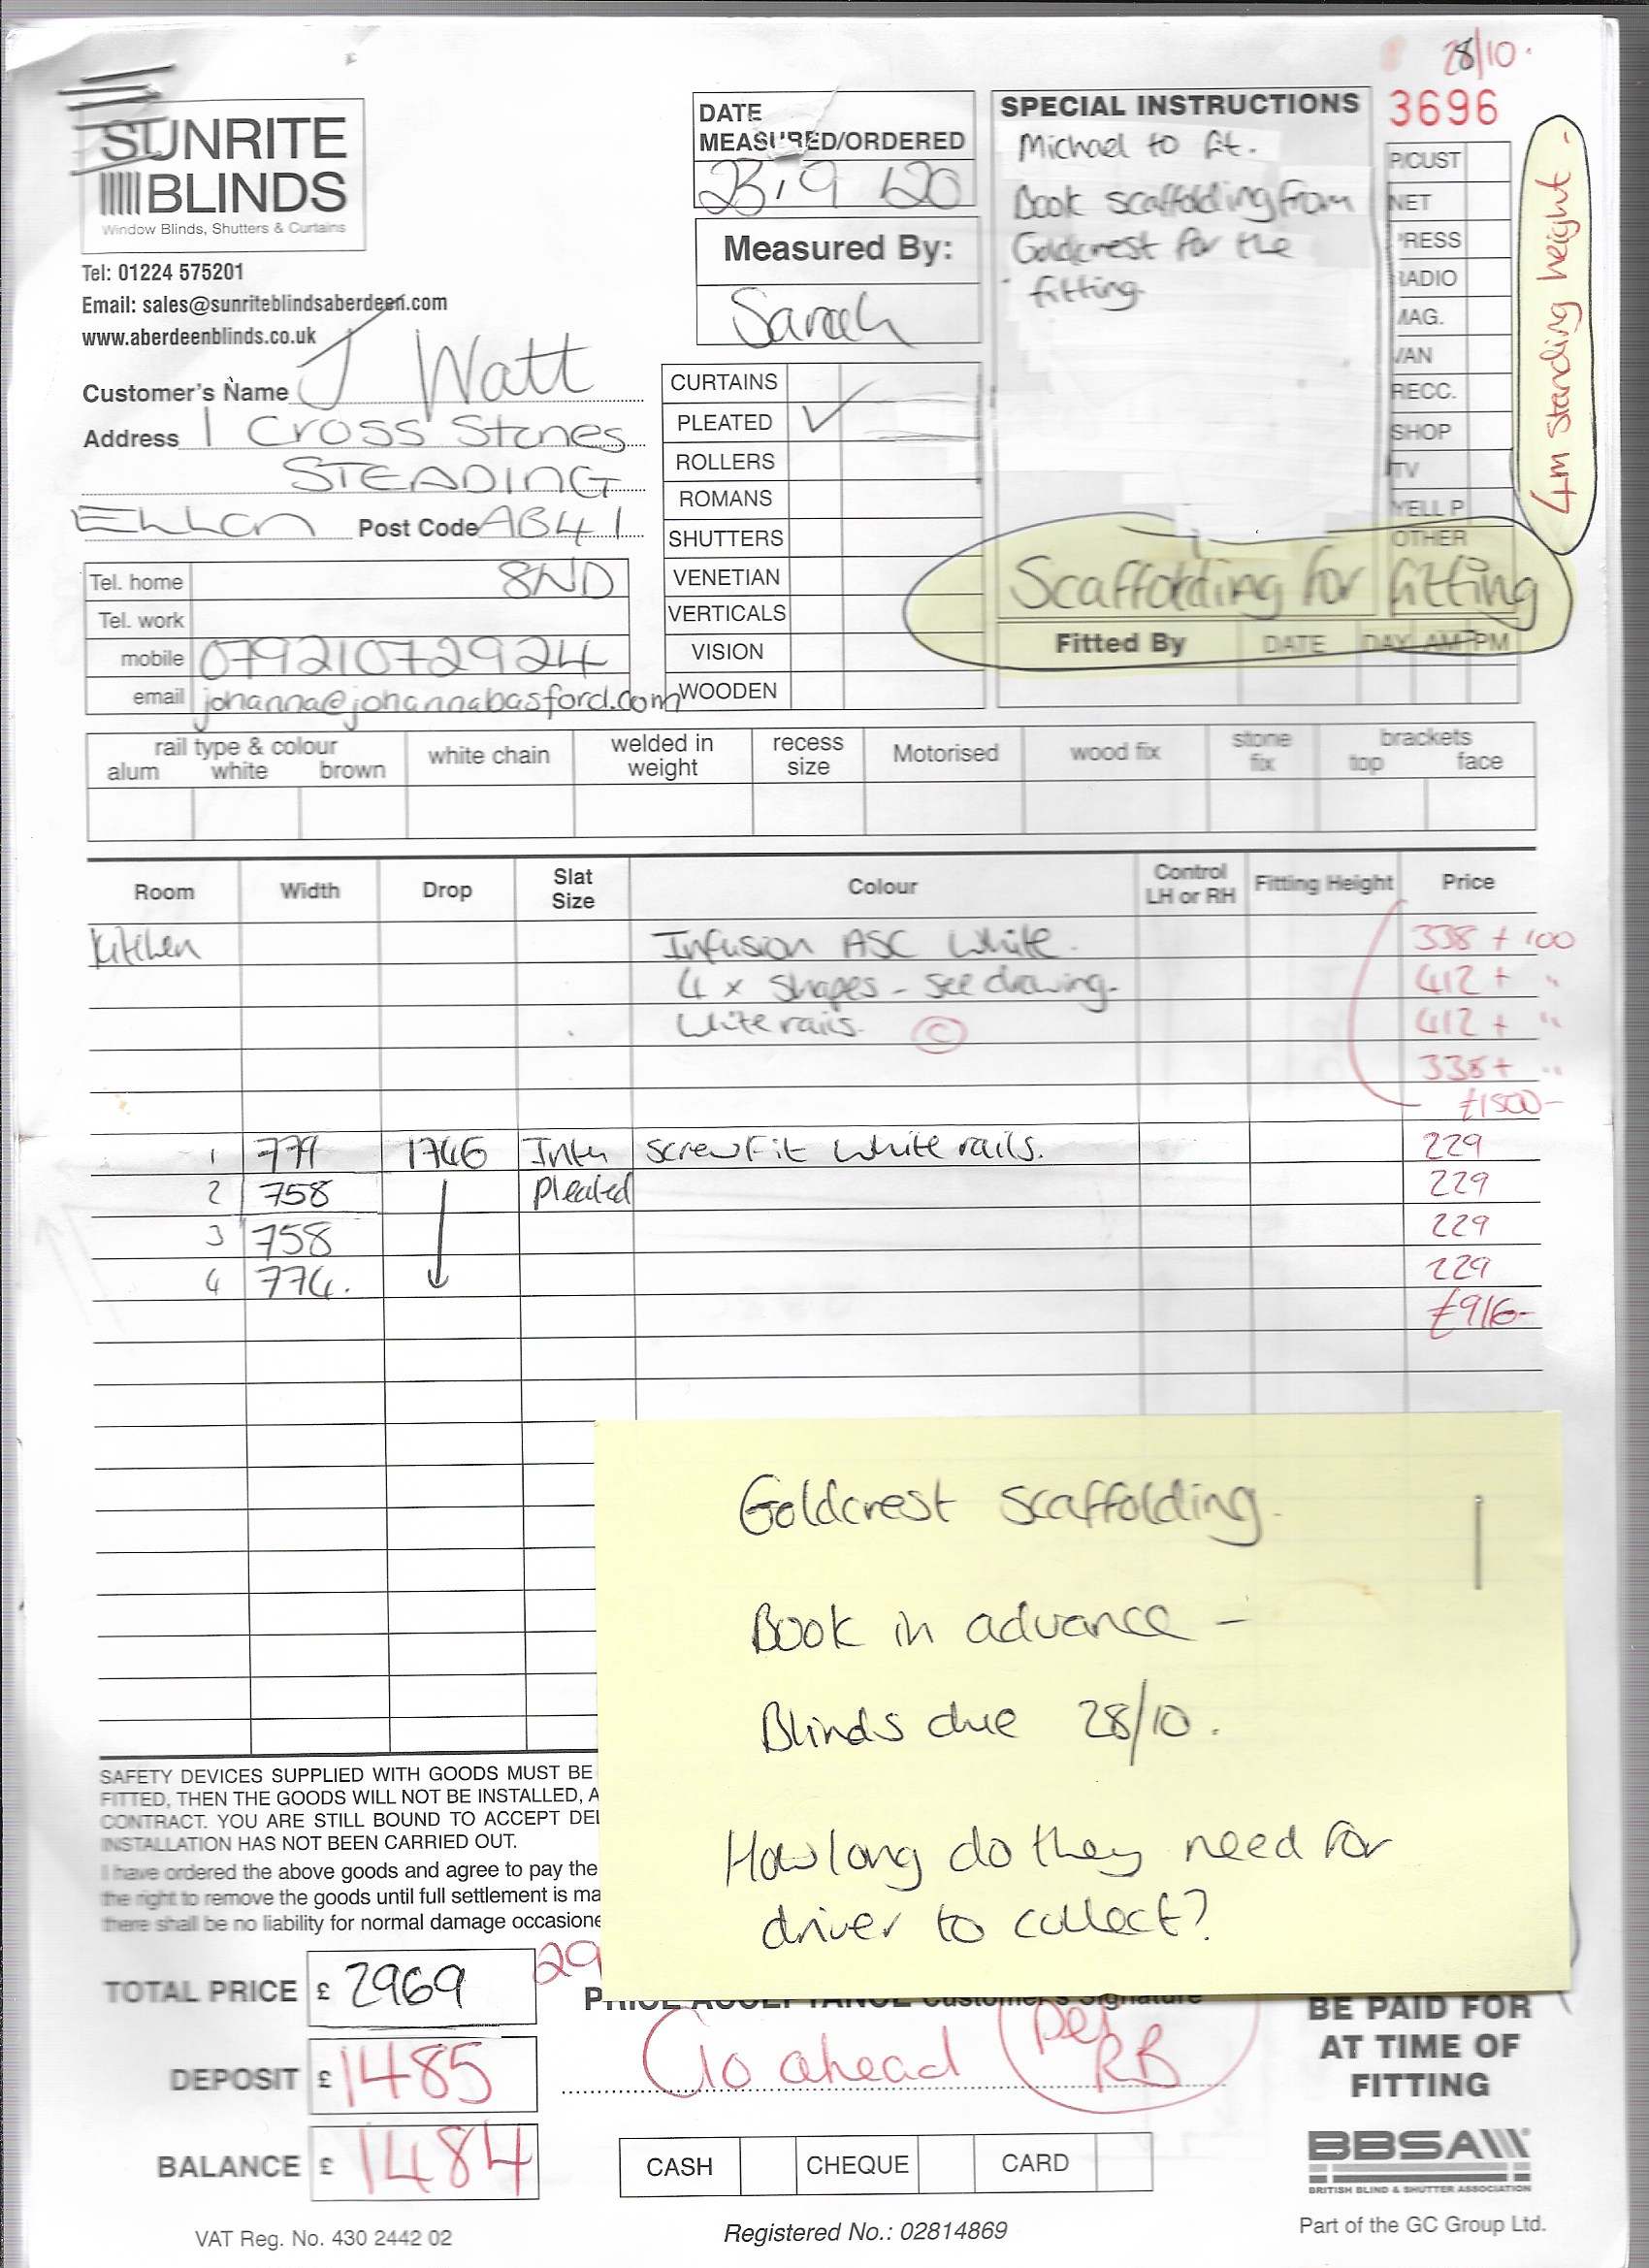 28/10.
3696
SUNRITE
BLINDS
Window Blinds, Shutters & Curtains
Tel: 01224 575201
Email: sales@sunriteblindsaberdeen.com
www.aberdeenblinds.co.uk
Customer's Name J Watt
Address 1 Cross Stones
STEADING
Ellon Post Code AB41
Tel. home 8ND
Tel. work
mobile 07921072924
email johanna@johannabasford.com
DATE
MEASURED/ORDERED
23.9 120
Measured By:
Sarah
CURTAINS
PLEATED ✓
ROLLERS
ROMANS
SHUTTERS
VENETIAN
VERTICALS
VISION
WOODEN
SPECIAL INSTRUCTIONS
Michael to fit.
Book scaffolding from
Goldcrest for the
fitting.
Scaffolding for fitting
Fitted By DATE DAY AM PM
P/CUST
NET
RESS
RADIO
MAG.
VAN
RECC.
SHOP
TV
YELL P
OTHER
4m standing height -
rail type & colour
alum white brown
white chain
welded in
weight
recess
size
Motorised
wood fix
stone
fix
brackets
top face
Room Width Drop Slat Size Colour Control LH or RH Fitting Height Price
Kitchen Infusion ASC White. 338 + 100
4 x Shapes - see drawing. 412 + "
White rails. © 412 + "
338 + "
£1500-
1 779 1746 Intu Screw Fit White rails. 229
2 758 Pleated 229
3 758 229
4 774. 229
£916-
Goldcrest Scaffolding.
Book in advance -
Blinds due 28/10.
How long do they need for
driver to collect?
SAFETY DEVICES SUPPLIED WITH GOODS MUST BE
FITTED, THEN THE GOODS WILL NOT BE INSTALLED, A
CONTRACT. YOU ARE STILL BOUND TO ACCEPT DEL
INSTALLATION HAS NOT BEEN CARRIED OUT.
I have ordered the above goods and agree to pay the
the right to remove the goods until full settlement is ma
there shall be no liability for normal damage occasione
TOTAL PRICE £ 2969 29
DEPOSIT £ 1485
BALANCE £ 1484
PRICE ACCEPTANCE Customer's Signature
Go ahead per RB
CASH CHEQUE CARD
BE PAID FOR
AT TIME OF
FITTING
BBSA
BRITISH BLIND & SHUTTER ASSOCIATION
VAT Reg. No. 430 2442 02
Registered No.: 02814869
Part of the GC Group Ltd.